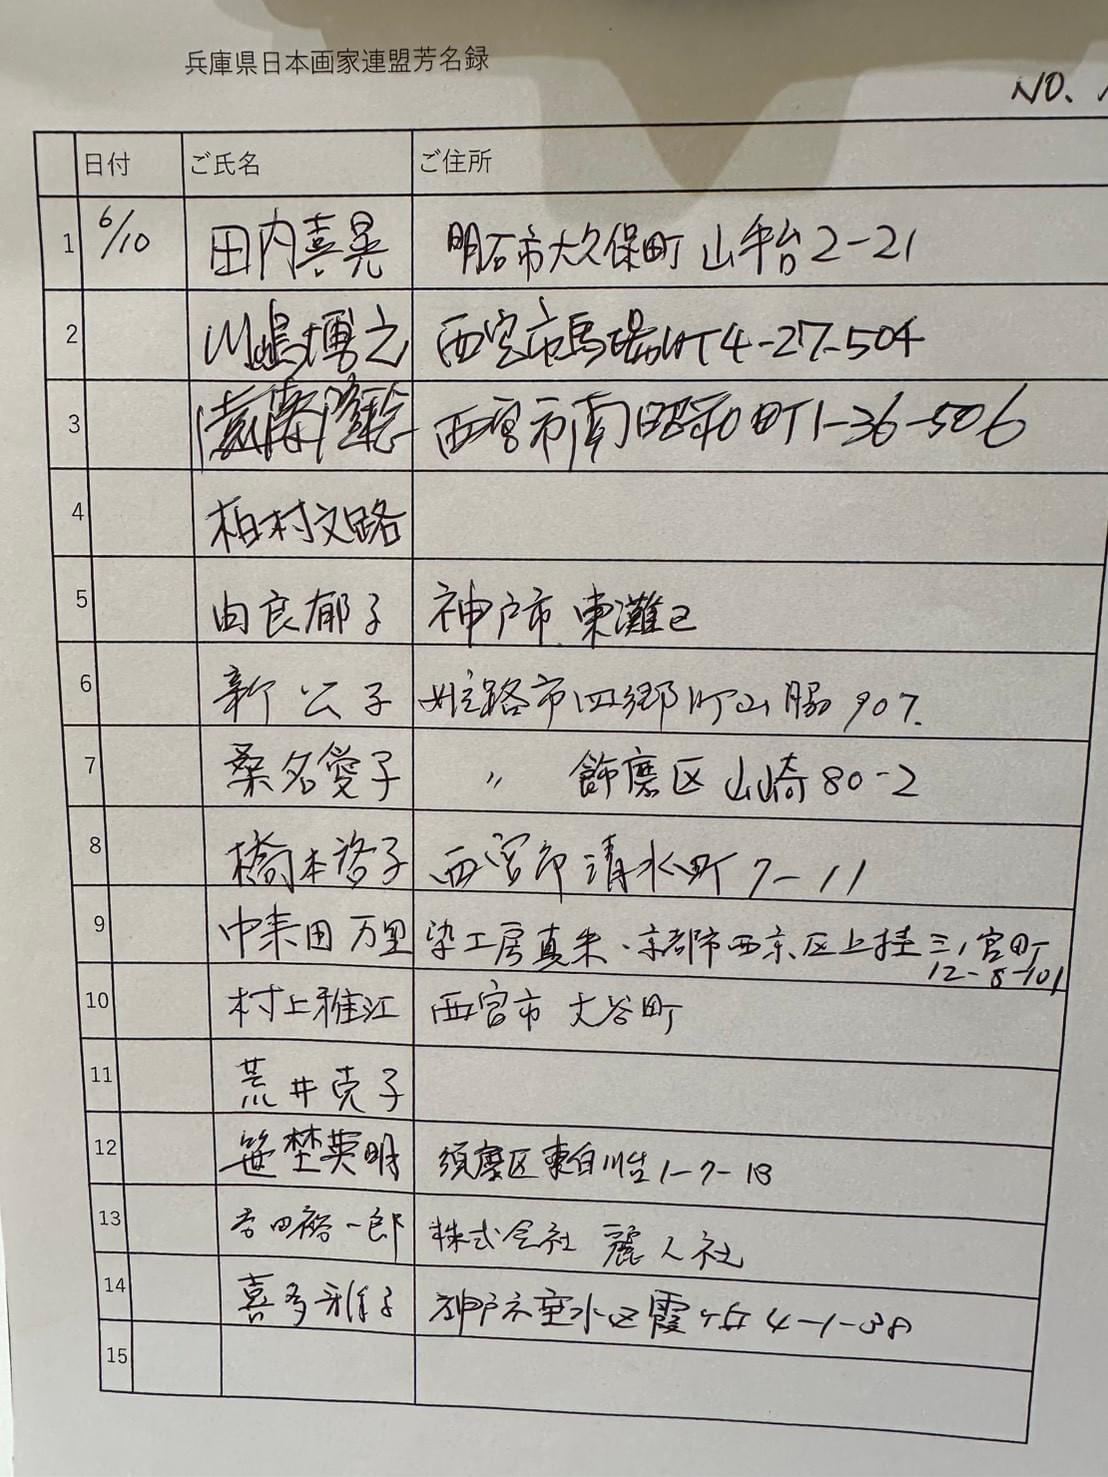 兵庫県日本画家連盟芳名録
NO.
日付 ご氏名 ご住所
1 6/10 田内喜晃 明石市大久保町 山手台2-21
2 川嶋博之 西宮市馬場町4-27-504
3 遠藤隆稔 西宮市南昭和町1-36-506
4 柏村文路
5 由良郁子 神戸市 東灘区
6 新 公子 姫路市四郷町山脇 907.
7 桑名愛子 〃 飾磨区 山崎80-2
8 橋本裕子 西宮市 清水町 7-11
9 中来田 万里 染工房真朱・京都市西京区上桂三ノ宮町
12-8-101
10 村上雅江 西宮市 大谷町
11 荒井克子
12 笹埜英明 須磨区東白川台1-7-13
13 吉田裕一郎 株式会社 麗人社
14 喜多雅子 神戸市垂水区霞ヶ丘4-1-38
15